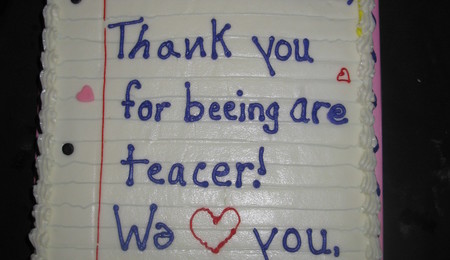 Thank you
for beeing are
teacer!
We ♥ you,